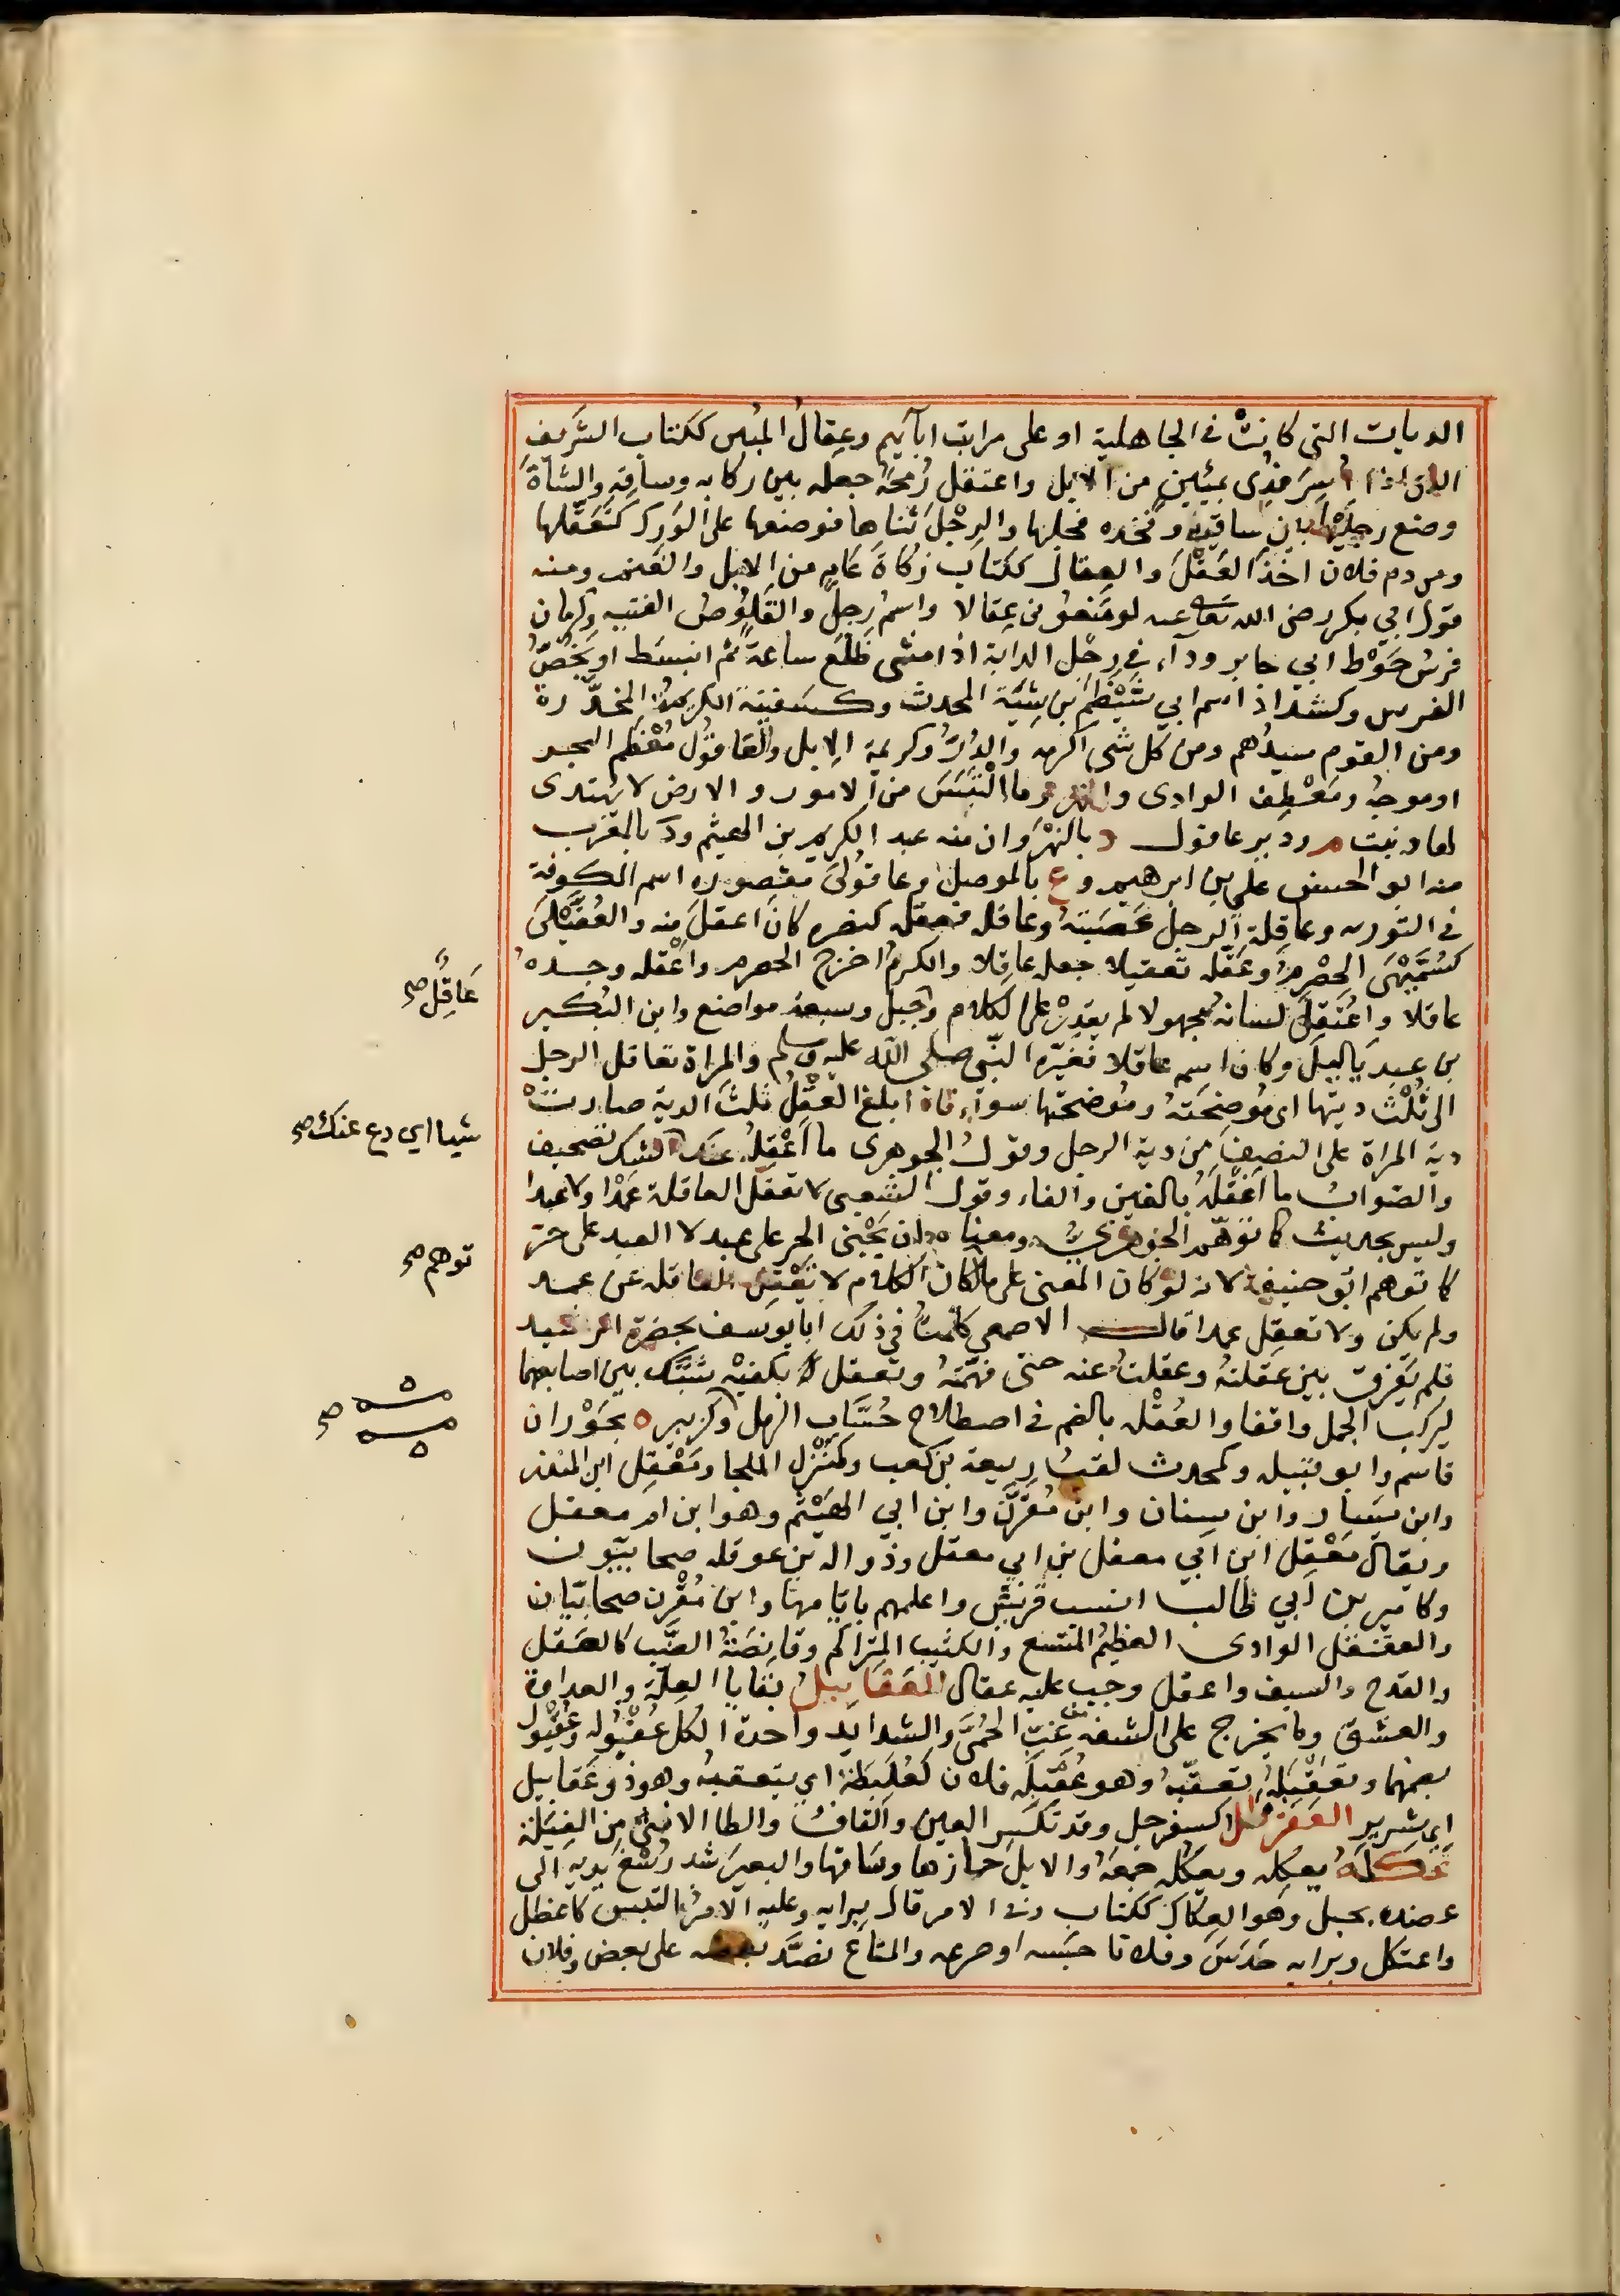 الديات التى كانت فى الجاهلية او على مراتب ابآئهم وعِقالُ المِئِين ككتاب الشريف
الذى اذا اُسِرَ فُدِى بمئين من الابل واعتقل رُمحَهُ جعله بين ركابه وساقه والشاةَ
وضع رجليها بين ساقيه وفخذه فحلبها والرِجْلَ ثناها فوضعها على الوَرِك كتَعَقَّلها
ومن دم فلان اخذ العَقْلَ والعِقال ككتاب زكاة عامٍ من الابل والغنم ومنه
قول ابى بكر رضى الله تعالى عنه لو منعونى عِقالا واسمُ رجل والقَلوُصُ الفتيه وكرمان
فرسُ حَوْط ابى جابر ودآء فى رِجْل الدابة اذا مشى ظَلَع ساعةً ثم انبسَط او يَخُصُّ
الفرس وكشداد اسم ابى شَيْظَم بن شبَّة المحدث وكسفينة الكريمةُ المخدّرة
ومن القوم سيدُهم ومن كل شى اكرمه والدُرُّ وكريمة الابل والعاقولُ مُعْظم البحر
او موجهُ ومَعْطِف الوادى والنهر وما التبَسَ من الامور والارض لا يُهتدى
لها ونبت م ودير عاقول د بالنهْرَوان منه عبد الكريم بن الهيثم ود بالمغرب
منه ابو الحسن على بن ابرهيم و ع بالموصل وعاقُولَى مقصوره اسم الكوفة
فى التورىه وعاقِلة الرجل عَصَبَتهُ وعاقله فعقله كنصره كان اعقلَ منه والعُقَّيْلَى
كسُمَّيْهَى الحِصْرِمُ وعَقَّله تعقيلا جعله عاقِلا والكرمُ اخرج الحصرم واعْقله وجده
عاقلا واعْتُقِلَ لسانه مجهولا لم يقدِرْ على الكلام وجبل وسبعة مواضع وابن البُكَير
عَاقِلٌ صح
بن عبد ياليل وكان اسمه عاقلا فغيَّره النبى صلى الله عليه وسلم والمراة تعاقل الرجل
الى ثُلُث ديتها اى مُوضِحَتهُ ومُوضحتها سوآء فاذا بلغ العقْلُ ثلثَ الدية صارتْ
دية المراة على النصِف من دية الرجل وقولُ الجوهرى ما اَعْقِلُه عنك الشك تصحيف
شيا اى دع عنك صح
والصوابُ ما اغفَلهُ بالغين والفاء وقول الشعبى لا تعقل العاقلة عَمْدا ولا عبدا
وليس بحديث كما توهّمه الجوهرىُّ ومعناه ان يَجْنى الحر على عبد لا العبد على حر
توهم صح
كما توهم ابو حنيفة لانه لو كان المعنى على ما كان الكلام لا تَعْقِل العاقله عن عبد
ولم يكن ولا تعقِل عبدا قال الاصمعى كلَّمتُ فى ذلك ابا يوسف بحضرة الرشيد
فلم يَفرِق بين عقلتهُ وعقلتُ عنه حتى فهَّمته وتعقل له بكفيْه شبَّك بين اصابعهما
ليركب الجمل واقفا والعُقْله بالضم فى اصطلاح حُسَّاب الرمل وكزبير ه بحَوْران
صح
قاسم وابو قبيله وكمحدث لقبُ ربيعة بن كعب وكمَنْزِل الملجا ومَعْقِل ابن المنذر
وابن يَسار وابن سنان وابن مُقَرِّن وابن ابى الهَيْثم وهو ابن ام معقل
ويقال مَعْقِل ابن ابى معقل بن ابى معقل وذوالة بن عوقلة صحابيّون
وكامير بن ابى طالب انسب قريش واعلمهم بايّامها وابن مُقْرِن صحابيّان
والعقنقل الوادى العظيمُ المتسع والكثيب المتراكم وقانِصَةُ الضَّب كالعَقل
والقدح والسيف واعقل وجب عليه عقال العَقَابِيلُ بقايا العِلَّة والعداوة
والعشق وما يخرج على الشفه من غِبّ الحُمَّى والشدايد واحدة الكل عُقْبُوله وعُقْبُول
بضمهما وتعَقْبَلَهُ تعقّبهُ وهو عُقَبِلَه فلان كعُلَبِطة اى يتعقبهُ وهو ذو عَقابيل
اى شرير العَقَرْطَلُ كسفرجل وقد تكسر العين والقافُ والطا الانثى من الفِيَلة
عَكَلَهُ يعكِله ويعكُله جمعهُ والابلَ حازها وساقها والبعيرَ شد رُسْغ يديه الى
عضده بحبل وهو العِكال ككتاب وفى الامر قال برايه وعليه الامرُ التبس كاعطل
واعتكل وبرايه حَدَسَ وفلانا حبَسه او صرعه والمتاع نضَّد بعضه على بعض وفلان